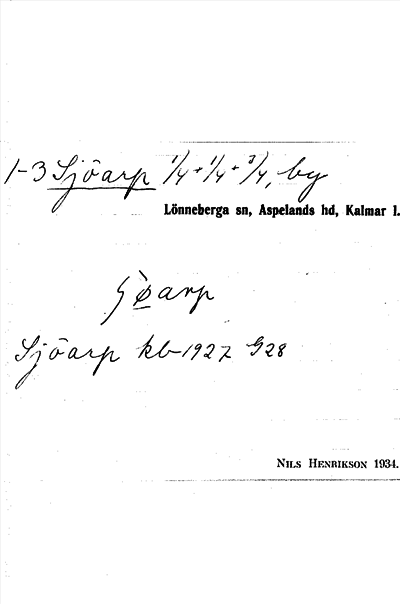 1-3 Sjöarp 1/4 + 1/4 + 3/4, by
Lönneberga sn, Aspelands hd, Kalmar l.
Sjöarp kb 1927
NILS HENRIKSON 1934.